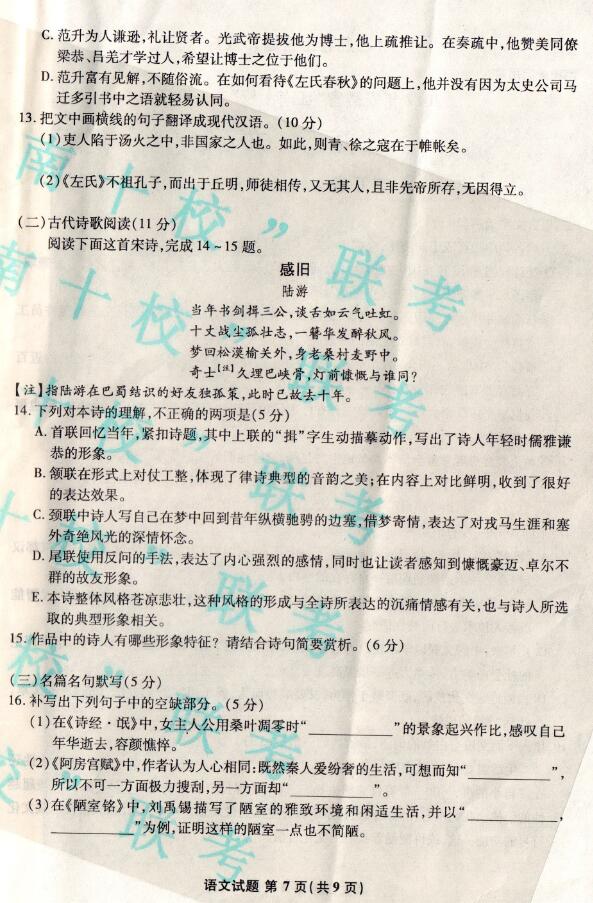 C. 范升为人谦逊,礼让贤者。光武帝提拔他为博士,他上疏推让。在奏疏中,他赞美同僚
梁恭、吕羌才学过人,希望让博士之位于他们。
D. 范升富有见解,不随俗流。在如何看待《左氏春秋》的问题上,他并没有因为太史公司马
迁多引书中之语就轻易认同。
13. 把文中画横线的句子翻译成现代汉语。(10 分)
(1)吏人陷于汤火之中,非国家之人也。如此,则青、徐之寇在于帷帐矣。
(2)《左氏》不祖孔子,而出于丘明,师徒相传,又无其人,且非先帝所存,无因得立。
(二)古代诗歌阅读(11 分)
阅读下面这首宋诗,完成 14～15 题。
感旧
陆游
当年书剑揖三公,谈舌如云气吐虹。
十丈战尘孤壮志,一簪华发醉秋风。
梦回松漠榆关外,身老桑村麦野中。
奇士【注】久埋巴峡骨,灯前慷慨与谁同?
【注】指陆游在巴蜀结识的好友独孤策,此时已故去十年。
14. 下列对本诗的理解,不正确的两项是(5 分)
A. 首联回忆当年,紧扣诗题,其中上联的“揖”字生动描摹动作,写出了诗人年轻时儒雅谦
恭的形象。
B. 颔联在形式上对仗工整,体现了律诗典型的音韵之美;在内容上对比鲜明,收到了很好
的表达效果。
C. 颈联中诗人写自己在梦中回到昔年纵横驰骋的边塞,借梦寄情,表达了对戎马生涯和塞
外奇绝风光的深情怀念。
D. 尾联使用反问的手法,表达了内心强烈的感情,同时也让读者感知到慷慨豪迈、卓尔不
群的故友形象。
E. 本诗整体风格苍凉悲壮,这种风格的形成与全诗所表达的沉痛情感有关,也与诗人所选
取的典型形象相关。
15. 作品中的诗人有哪些形象特征? 请结合诗句简要赏析。(6 分)
(三)名篇名句默写(5 分)
16. 补写出下列句子中的空缺部分。(5 分)
(1)在《诗经·氓》中,女主人公用桑叶凋零时“__________”的景象起兴作比,感叹自己
年华逝去,容颜憔悴。
(2)《阿房宫赋》中,作者认为人心相同;既然秦人爱纷奢的生活,可想而知“__________”,
所以不可一方面极力搜刮,另一方面却“__________”。
(3)在《陋室铭》中,刘禹锡描写了陋室的雅致环境和闲适生活,并以“__________,
__________”为例,证明这样的陋室一点也不简陋。
语文试题 第 7 页(共 9 页)
南十校”联考
南十校”联考
十校”联考
十校”联考
校”联考
校”联考